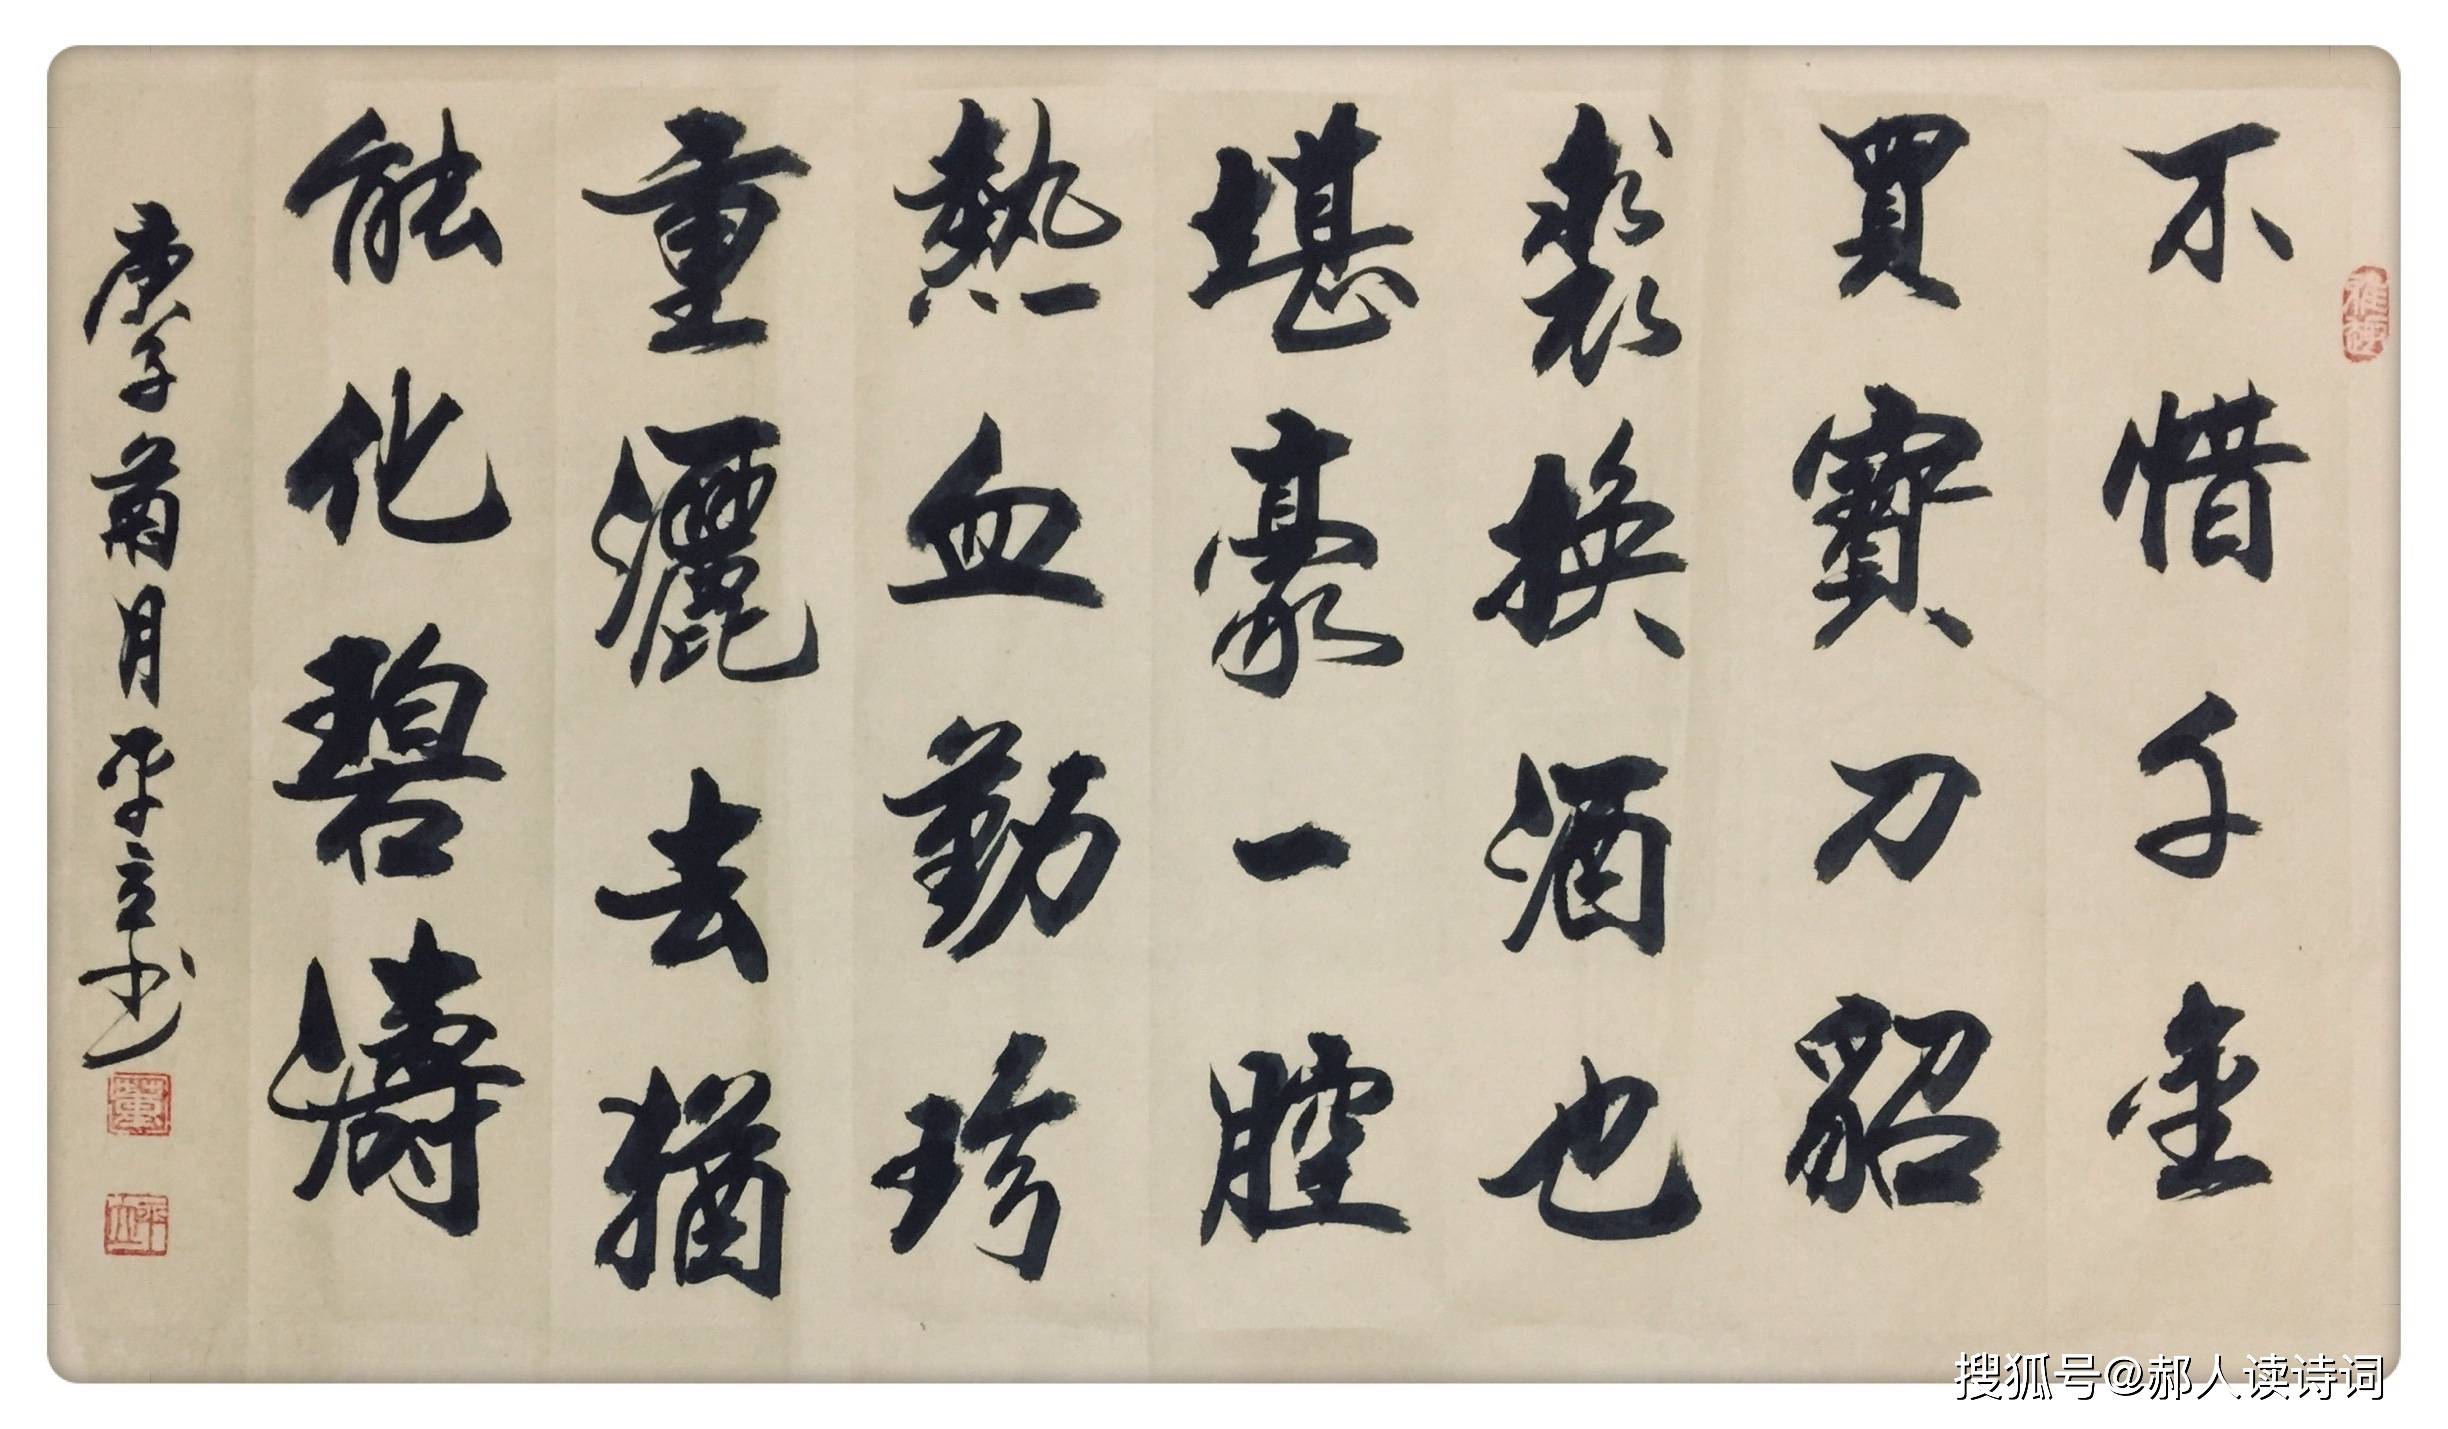 不惜千金
買寶刀貂
裘換酒也
堪豪一腔
熱血勤珍
重灑去猶
能化碧濤
庚子菊月平立书
雅趣
董
平立
搜狐号@郝人读诗词